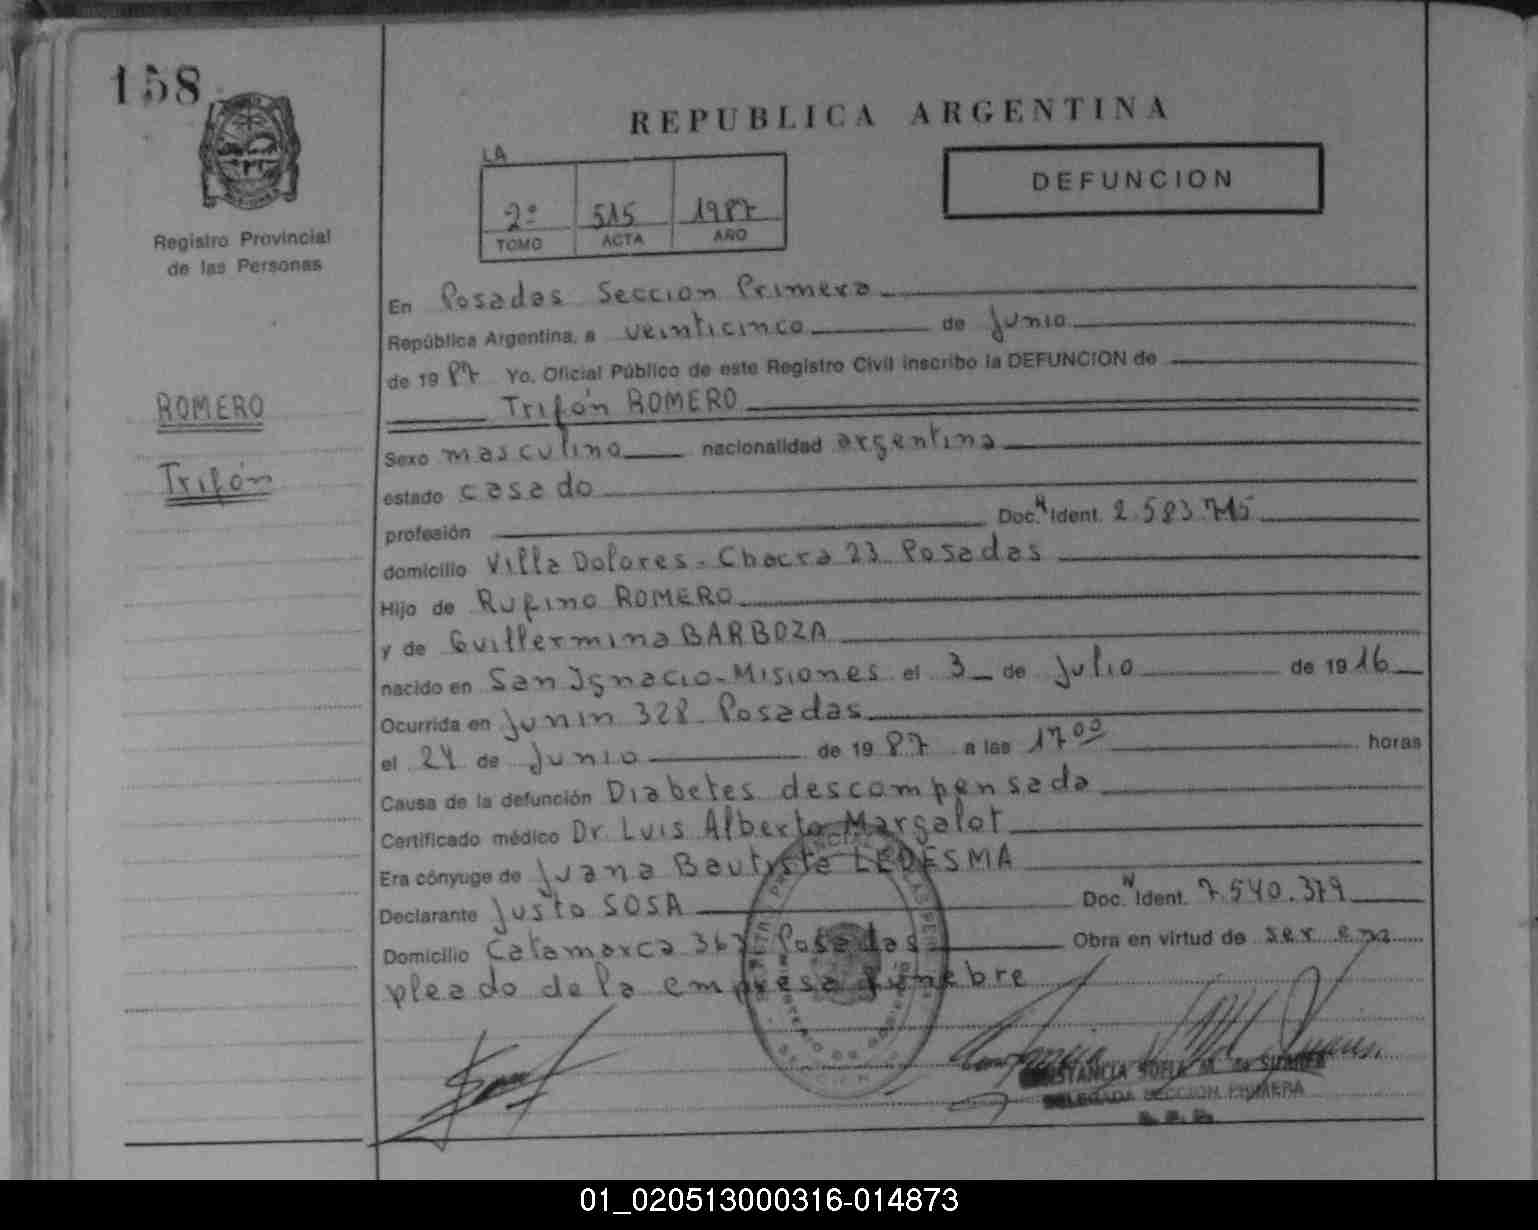 158
REPUBLICA ARGENTINA
LA
DEFUNCION
2º 515 1987
TOMO ACTA AÑO
Registro Provincial
de las Personas
En Posadas Seccion Primera
República Argentina, a veinticinco de Junio
de 1987 Yo, Oficial Público de este Registro Civil inscribo la DEFUNCION de
ROMERO
Trifón ROMERO
Sexo masculino nacionalidad argentina
Trifón
estado casado
profesión Doc. N Ident. 2.583.715
domicilio Villa Dolores - Chacra 23 Posadas
Hijo de Rufino ROMERO
y de Guillermina BARBOZA
nacido en San Ignacio - Misiones el 3 de Julio de 1916
Ocurrida en Junin 328 Posadas
el 24 de Junio de 1987 a las 17 00 horas
Causa de la defunción Diabetes descompensada
Certificado médico Dr. Luis Alberto Margalot
Era cónyuge de Juana Bautista LEDESMA
Declarante Justo SOSA Doc. N Ident. 7.540.379
Domicilio Catamarca 367 Posadas Obra en virtud de ser em
pleado de la empresa funebre
SOFIA M. de
DELEGADA SECCION PRIMERA
01_020513000316-014873